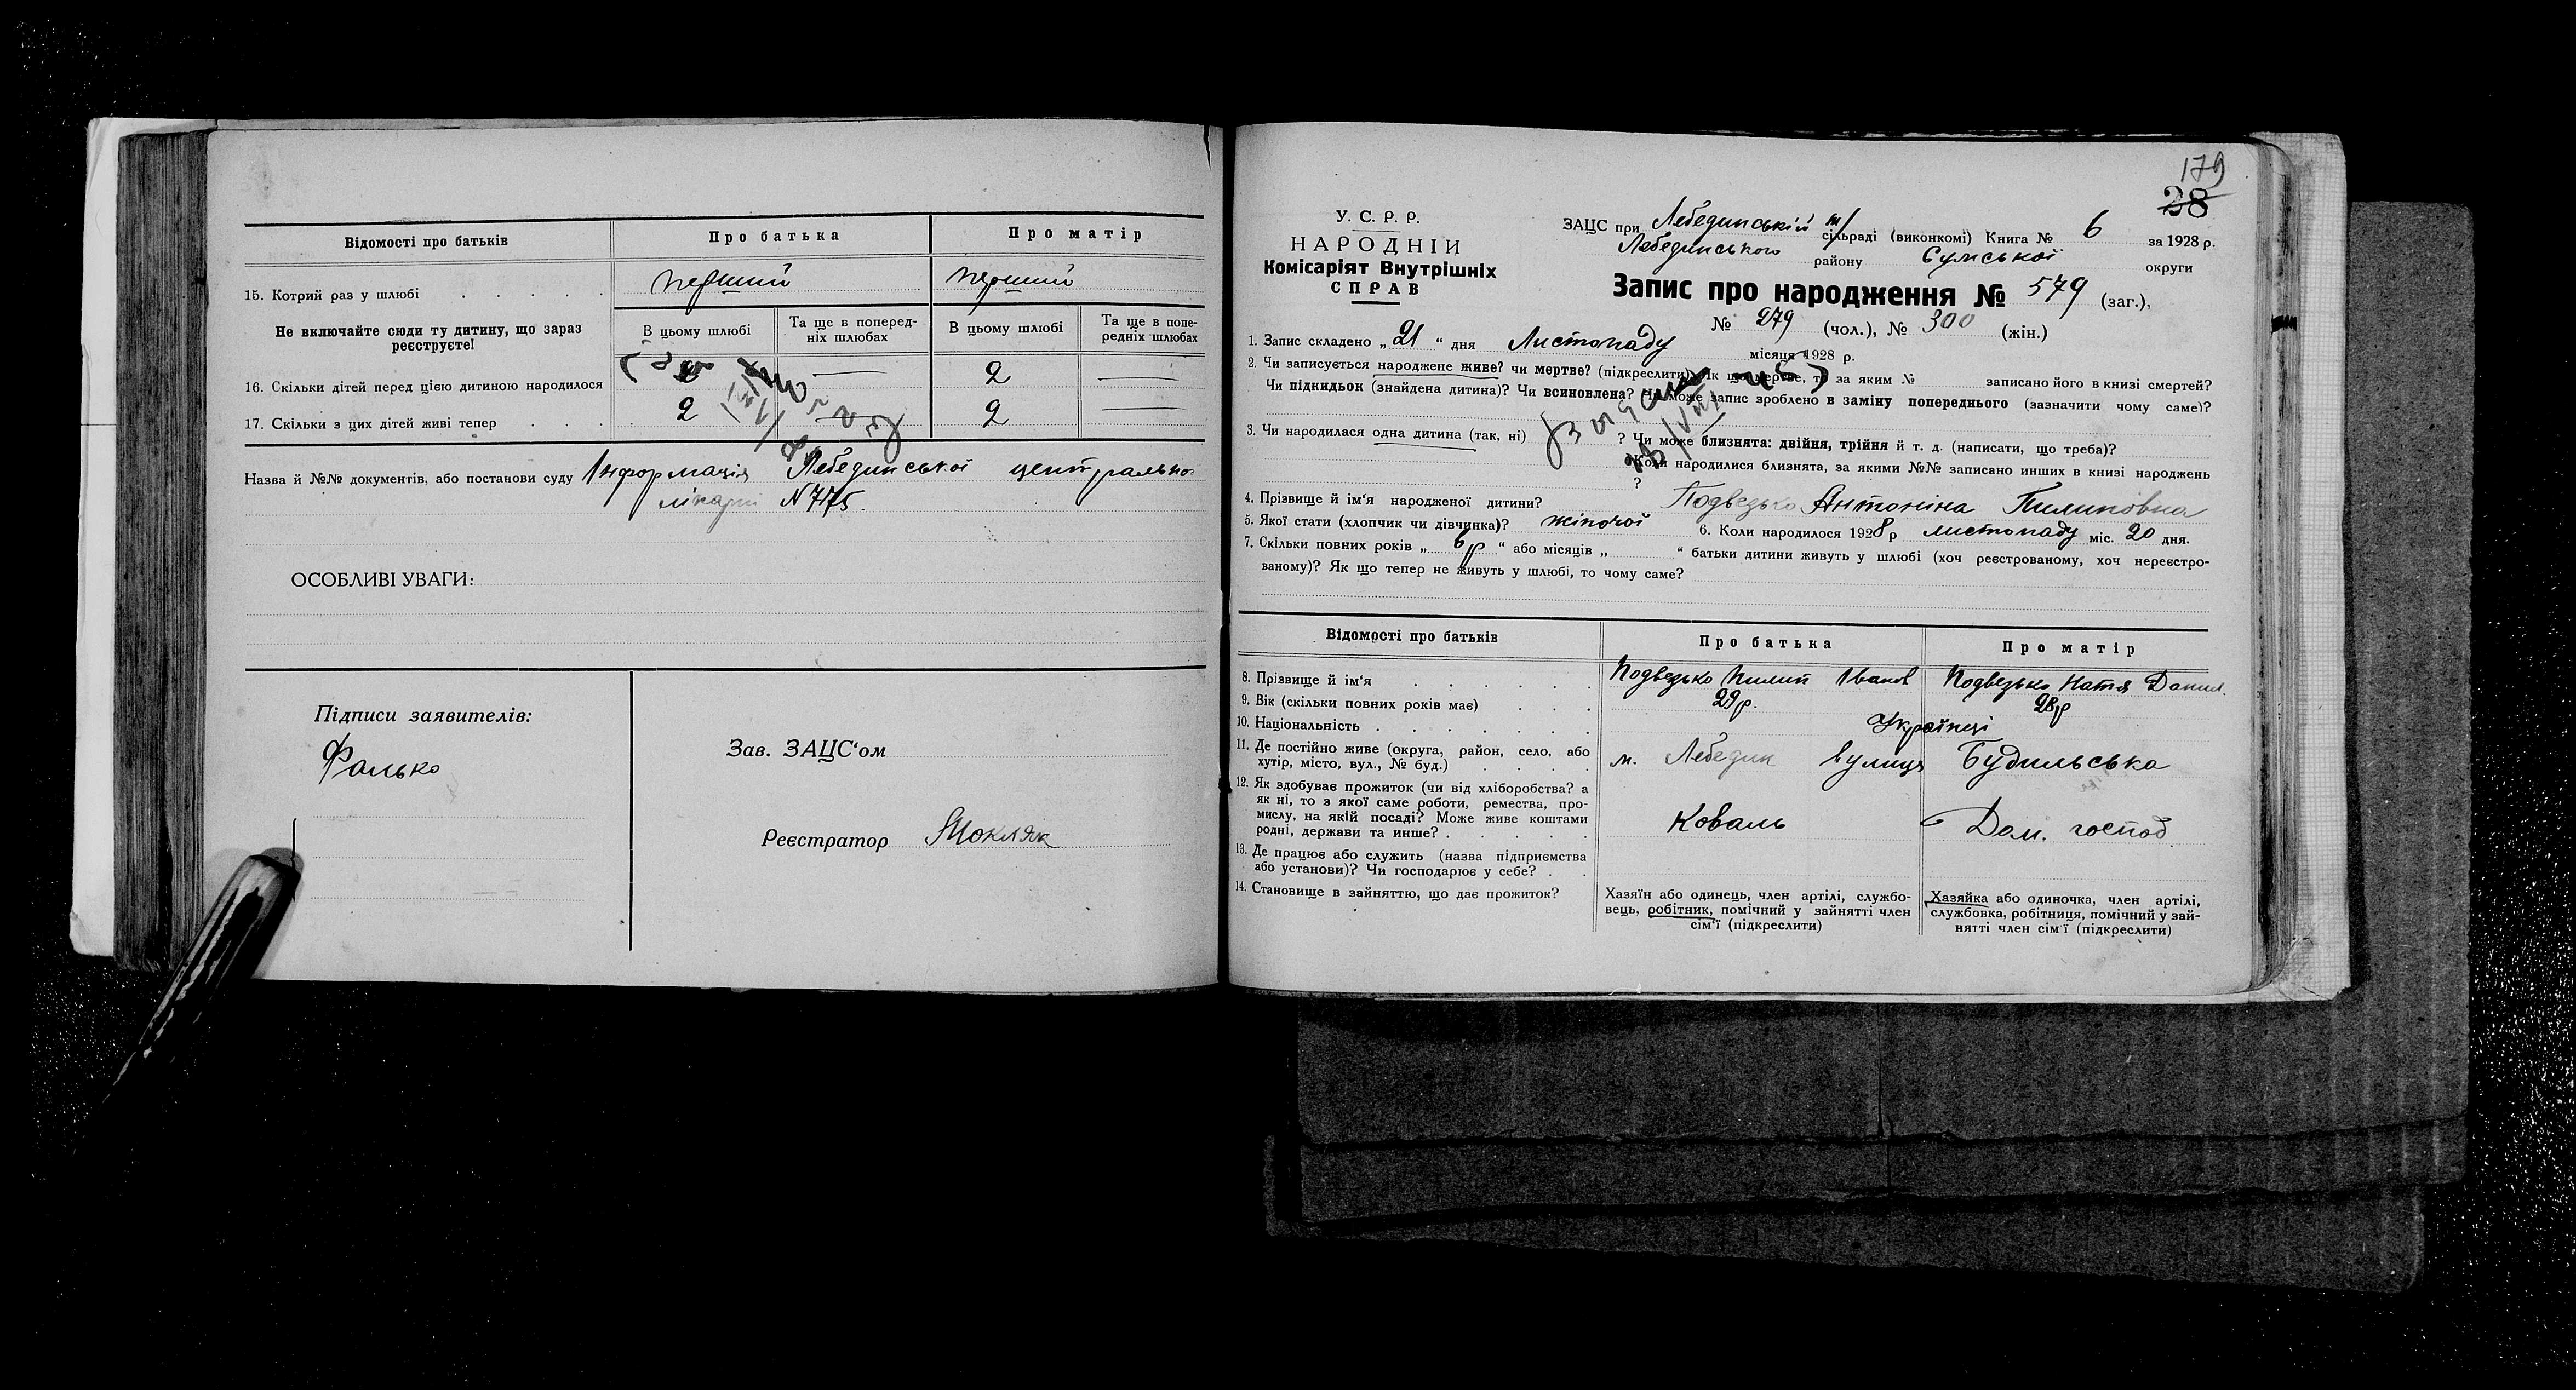 Відомості про батьків
Про батька
Про матір
15. Котрий раз у шлюбі
перший
перший
Не включайте сюди ту дитину, що зараз
реєструєте!
В цьому шлюбі
Та ще в поперед-
ніх шлюбах
В цьому шлюбі
Та ще в попе-
редніх шлюбах
16. Скільки дітей перед цією дитиною народилося
2
—
2
—
17. Скільки з цих дітей живі тепер
2
—
2
—
Назва й №№ документів, або постанови суду Інформація Лебединської центральної
лікарні N 775.
ОСОБЛИВІ УВАГИ:
Підписи заявителів:
Фалько
Зав. ЗАЦС‘ом
Реєстратор
179
28
У. С. Р. Р.
НАРОДНІЙ
Комісаріят Внутрішніх
СПРАВ
ЗАЦС при Лебединській м/ сільраді (виконкомі) Книга № 6 за 1928 р.
Лебединського району Сумської округи
Запис про народження № 579 (заг.),
№ 279 (чол.), № 300 (жін.)
1. Запис складено „ 21 “ дня Листопаду місяця 1928 р.
2. Чи записується народжене живе? чи мертве? (підкреслити). Як що мертве, то за яким № записано його в книзі смертей?
Чи підкидьок (знайдена дитина)? Чи всиновлена? Чи може запис зроблено в заміну попереднього (зазначити чому саме)?
3. Чи народилася одна дитина (так, ні) ? Чи може близнята: двійня, трійня й т. д. (написати, що треба)?
Коли народилися близнята, за якими №№ записано инших в книзі народжень
?
4. Прізвище й ім‘я народженої дитини? Подвезько Антоніна Пилиповна
5. Якої стати (хлопчик чи дівчинка)? жіночої 6. Коли народилося 1928 р листопаду міс. 20 дня.
7. Скільки повних років „ 6 р “ або місяців „ “ батьки дитини живуть у шлюбі (хоч реєстрованому, хоч нереєстро-
ваному)? Як що тепер не живуть у шлюбі, то чому саме?
Відомості про батьків
Про батька
Про матір
8. Прізвище й ім‘я
Подвезько Пилип Іванов
Подвезько Натя Данил.
9. Вік (скільки повних років має)
29 р.
28 р
10. Національність
Українці
11. Де постійно живе (округа, район, село, або
хутір, місто, вул., № буд.)
м. Лебедин вулиця Будильська
12. Як здобуває прожиток (чи від хліборобства? а
як ні, то з якої саме роботи, ремества, про-
мислу, на якій посаді? Може живе коштами
родні, держави та инше?
Коваль
Дом. господ.
13. Де працює або служить (назва підприємства
або установи)? Чи господарює у себе?
14. Становище в зайняттю, що дає прожиток?
Хазяїн або одинець, член артілі, службо-
вець, робітник, помічний у зайнятті член
сім‘ї (підкреслити)
Хазяйка або одиночка, член артілі,
службовка, робітниця, помічний у зай-
нятті член сім‘ї (підкреслити)